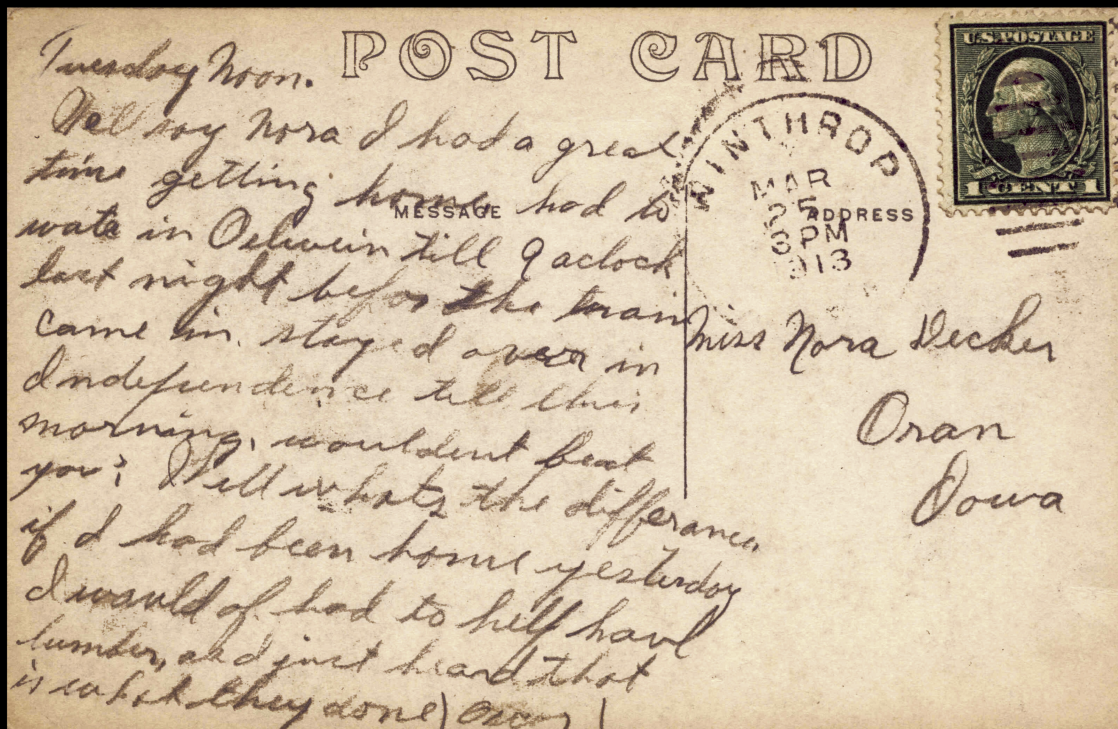 POST CARD
U.S. POSTAGE
1 CENT 1
WINTHROP
MAR
25
6 PM
1913
MESSAGE
ADDRESS
Tuesday Noon.
Well say Nora I had a great
time getting home had to
wate in Oelwein till 9 aclock
last night befor the train
came in. stayed over in
Independence till this
morning, wouldent beat
you? Well whats the differance,
if I had been home yesterday
I would of had to help haul
lumber, and just heard that
is what they done)
Miss Nora Decker
Oran
Iowa